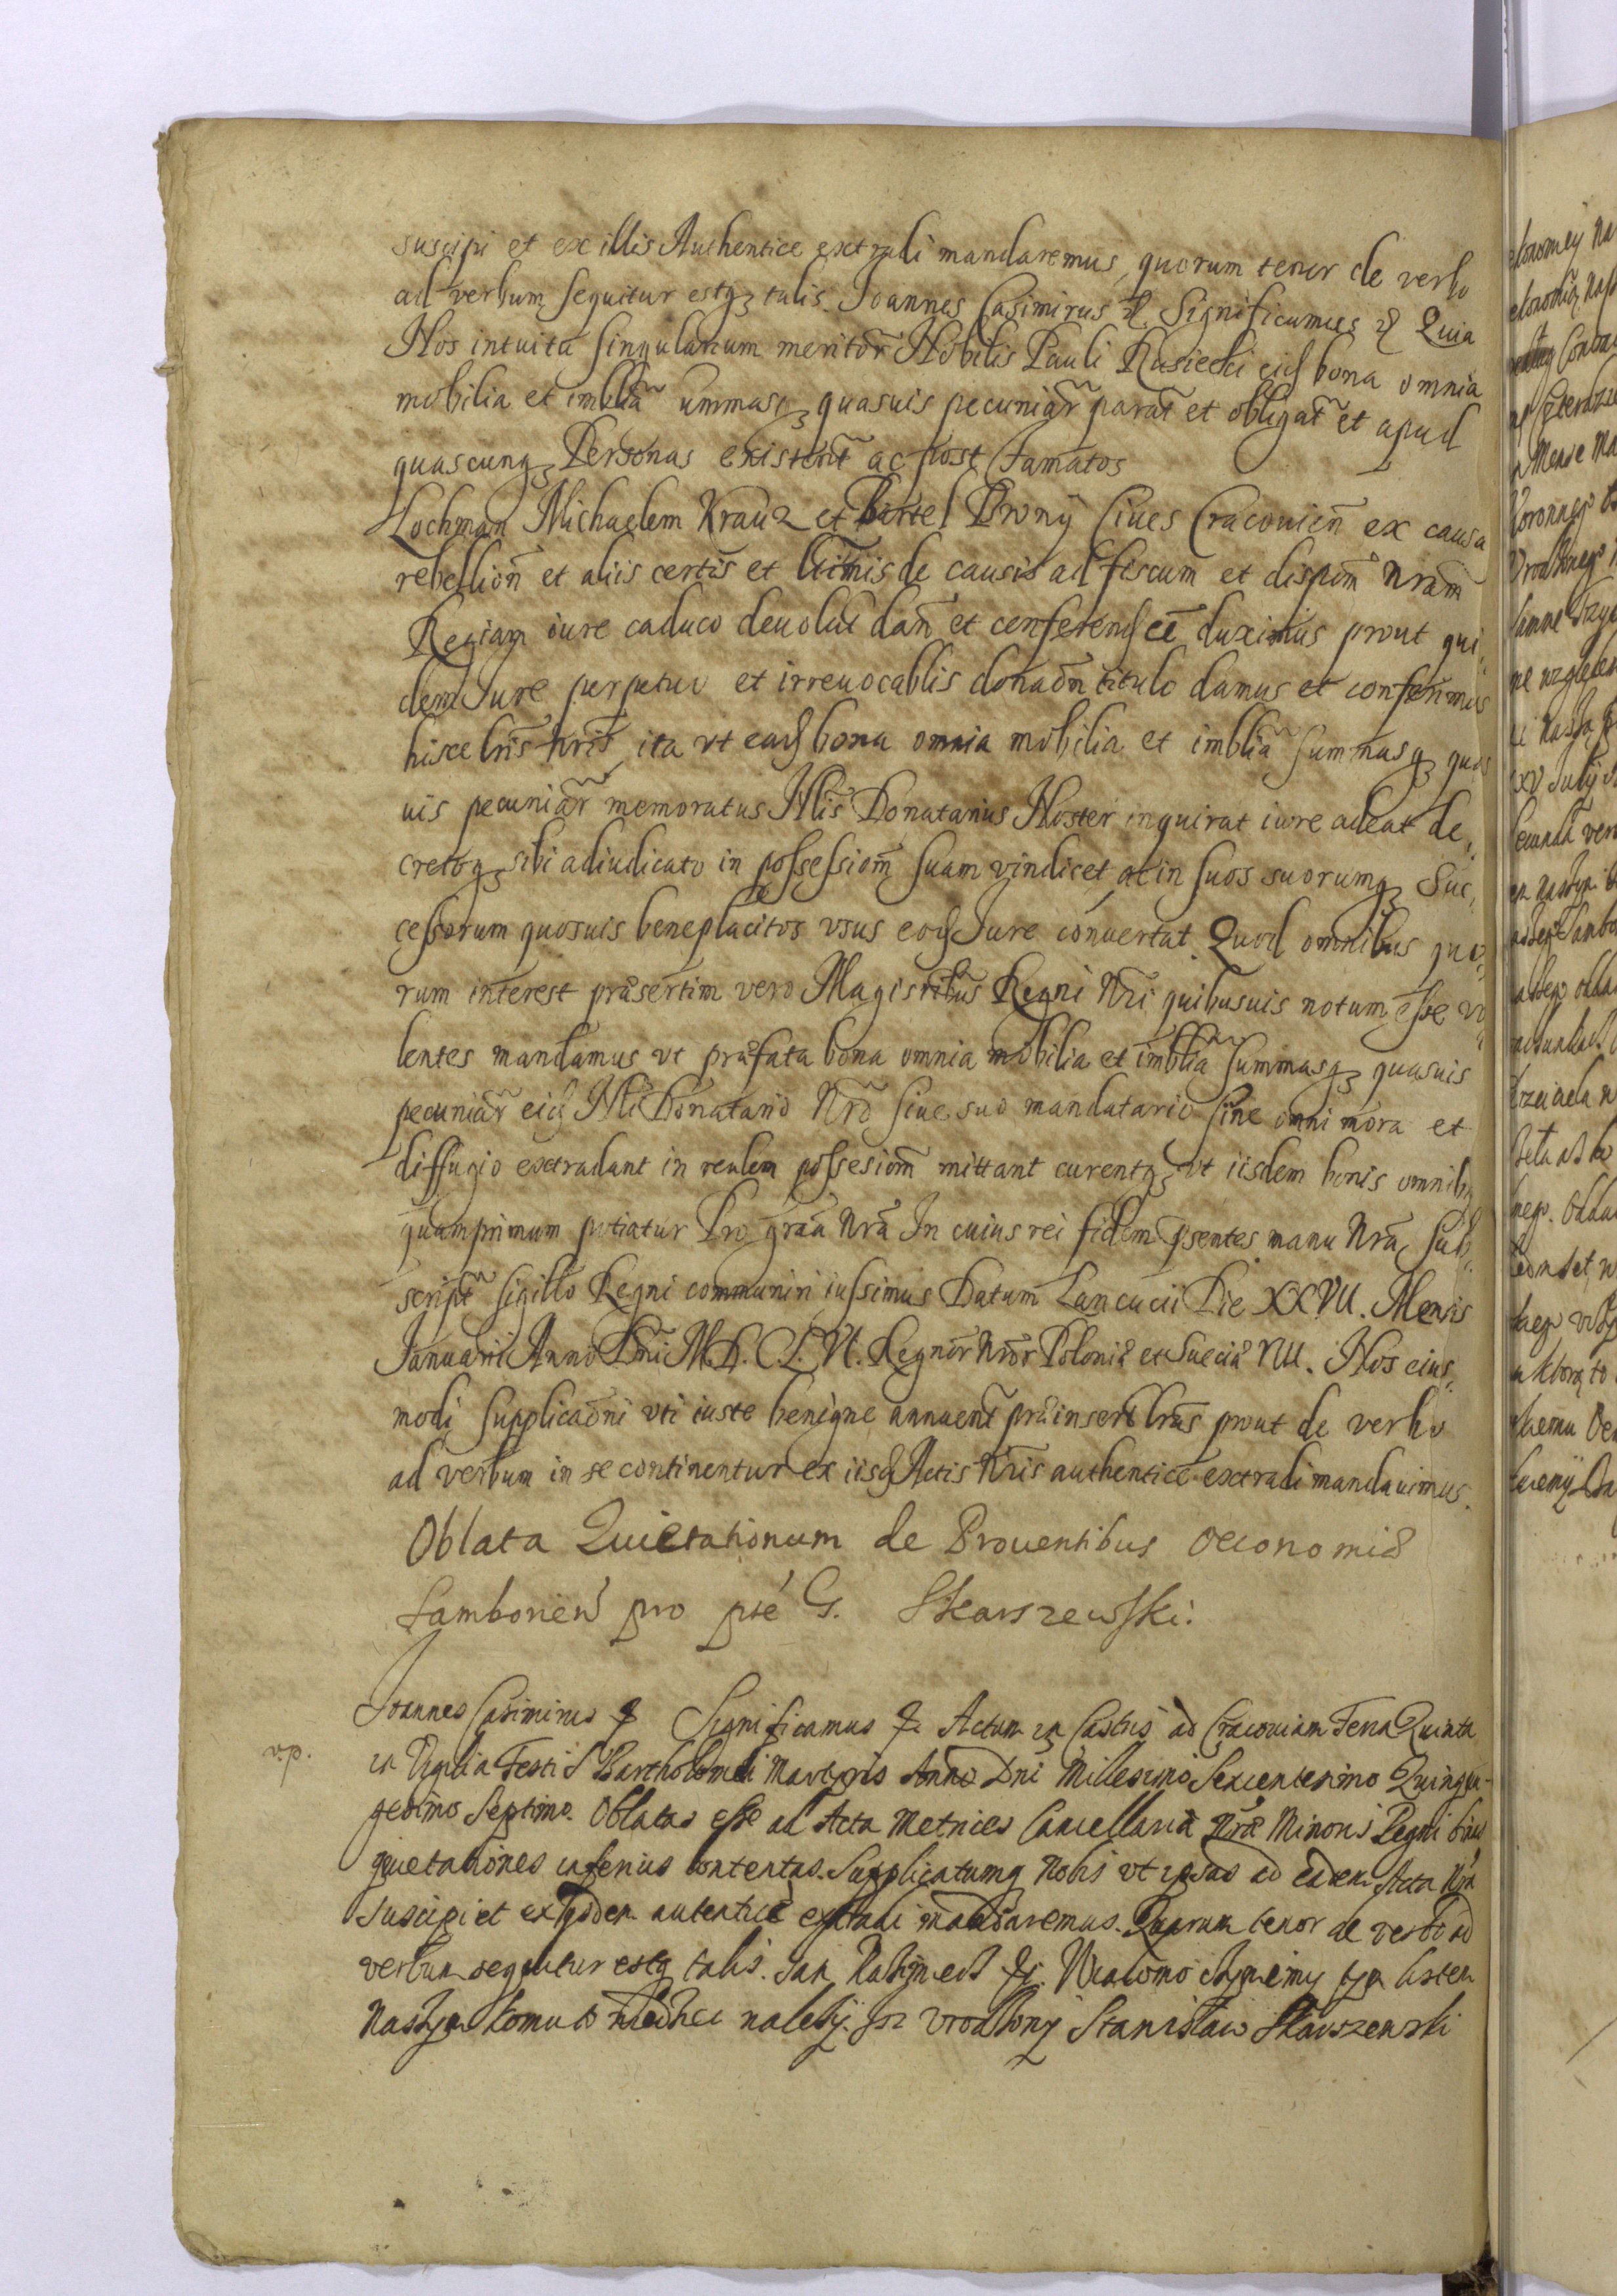 suscipi et ex illis Authentice extradi mandaremus, quorum tenor de verbo
ad verbum sequitur estq₃ talis. Joannes Casimirus &. Significamus & Quia
Nos intuitu singularium meritor̃ Nobilis Pauli Rusiecki eid̃ bona omnia
mobilia et imblia᷉ ummasq₃ quasuis pecuniar̃ parat̃ et obligat̃ et apud
quascunq₃ Personas existent̃ ac post Famatos
Lochman Michaelem Krauz et Bartel Drony Ciues Cracouien̄ ex causa
rebellion̄ et aliis certis et ltīmis de causis ad fiscum et dispōm Nram̄
Regiam iure caduco deuolut̃ dan̄ et conferend̃ cē duximus prout qui,
dem Jure perpetuo et irreuocablis donaōn titulo damus et conferimus
hisce lris̄ Nris̄, ita vt ead̃ bona omnia mobilia et imblia᷉ summasq₃ quas
uis pecuniar̃ memoratus Nlis̄ Donatarius Noster inquirat iure adeat de,
cretoq₃ sibi adiudicato in possessiom̄ suam vindicet ac in suos suorumq₃ Suc,
cessorum quosuis beneplacitos vsus eod̃ Jure conuertat. Quod omnibus quo,
rum interest præsertim vero Magistribus̃ Regni Nri quibusuis notum esse vo
lentes mandamus vt præfata bona omnia mobilia et imblia᷉ summasq₃ quasuis
pecuniar̃ eid̃ Nli Donatario Nro̅ siue suo mandatario sine omni mora et
diffugio extradant in realem possesiom̄ mittant curentq₃ vt iisdem bonis omnibq
quamprimum potiatur Pro gra̅a Nra̅ In cuius rei fidem p̄sentes manu Nra̅ sub,
script̃ sigillo Regni communiri iussimus Datum Lancucii Die XXVII. Mensis
Januarii Anno Dni̅ M.D.C.L.VI. Regnor̃ Nror̃ Poloniæ et Sueciæ VIII. Nos eius,
modi supplicaōni vti iuste benigne annuent̃ præinsert̃ lras̄ prout de verbo
ad verbum in se continentur ex iisd̃ Actis Nris̄ authentice extradi mandauimus.
Oblata Quietationum de Prouentibus Oeconomiæ
Samborien̄ pro pte G. Skarszewski.
Joannes Casimirus & Significamus & Actum in Castris ad Cracouiam Feria Quinta
v.p.
in Vigilia Festi S Bartholomæi Martyris Anno Dni Millesimo Sexcentesimo Quinqua-
gesimo Septimo. Oblatas esse ad Acta Metrices Cancellariæ Nræ Minoris Regni binas
quietationes inferius contentas. Supplicatumq Nobis vt ipsas ad eadem Acta Nra
suscipi et ex ijsdem autentice extradi mandaremus. Quarum tenor de verbo ad
verbum sequitur estq talis. Jan Kazimierz &. Wiadomo czyniemy tym listem
Naszym komu to wiedziec nalezy. Jz Vrodzony Stanisław Skarszewski